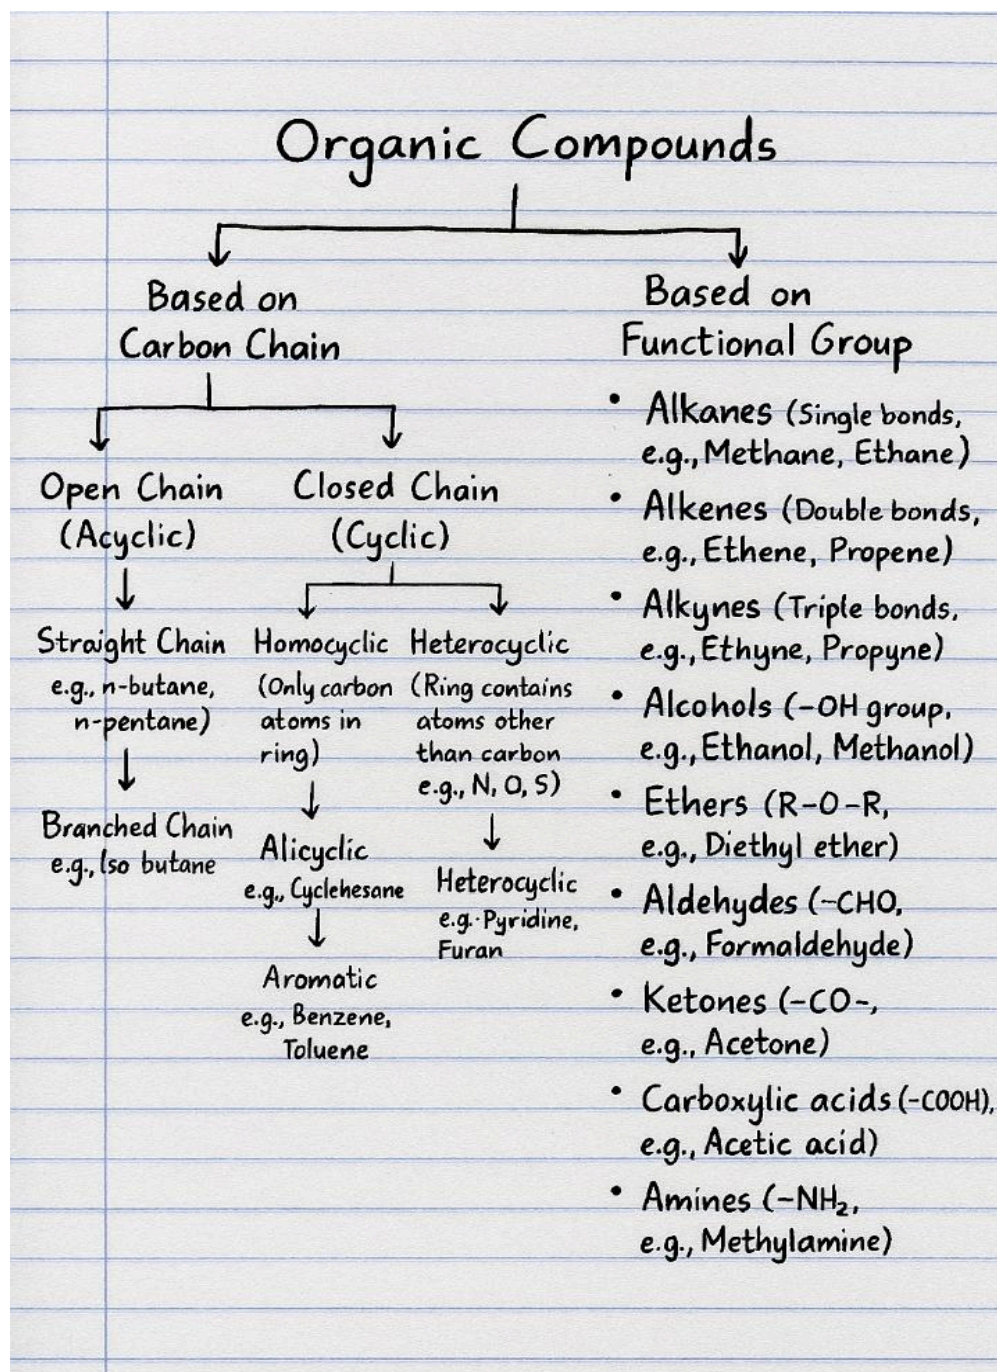 Organic Compounds
Based on
Carbon Chain
Open Chain
(Acyclic)
Straight Chain
e.g., n-butane,
n-pentane)
Branched Chain
e.g., Iso butane
Closed Chain
(Cyclic)
Homocyclic
(Only carbon
atoms in
ring)
Alicyclic
e.g., Cyclehesane
Aromatic
e.g., Benzene,
Toluene
Heterocyclic
(Ring contains
atoms other
than carbon
e.g., N, O, S)
Heterocyclic
e.g. Pyridine,
Furan
Based on
Functional Group
• Alkanes (Single bonds,
e.g., Methane, Ethane)
• Alkenes (Double bonds,
e.g., Ethene, Propene)
• Alkynes (Triple bonds,
e.g., Ethyne, Propyne)
• Alcohols (-OH group,
e.g., Ethanol, Methanol)
• Ethers (R-O-R,
e.g., Diethyl ether)
• Aldehydes (-CHO,
e.g., Formaldehyde)
• Ketones (-CO-,
e.g., Acetone)
• Carboxylic acids (-COOH),
e.g., Acetic acid)
• Amines (-NH₂,
e.g., Methylamine)